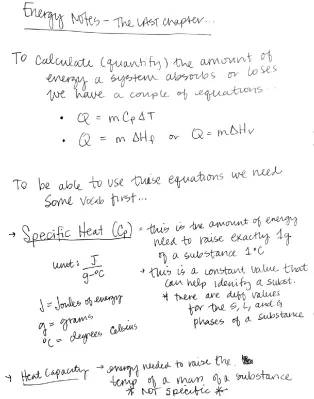 Energy Notes - The Last chapter...
To calculate (quantify) the amount of
energy a system absorbs or loses
we have a couple of equations...
• Q = mCpΔT
• Q = mΔHf or Q = mΔHv
To be able to use these equations we need
some vocab first...
→ Specific Heat (Cp) = this is the amount of energy
need to raise exactly 1g
of a substance 1°C
unit: J
g-°C
* this is a constant value that
can help identify a subst.
* there are diff values
for the S, L, and G
phases of a substance
J = Joules of energy
g = grams
°C = degrees Celsius
→ Heat Capacity → energy needed to raise the
temp of a mass of a substance
* NOT specific *